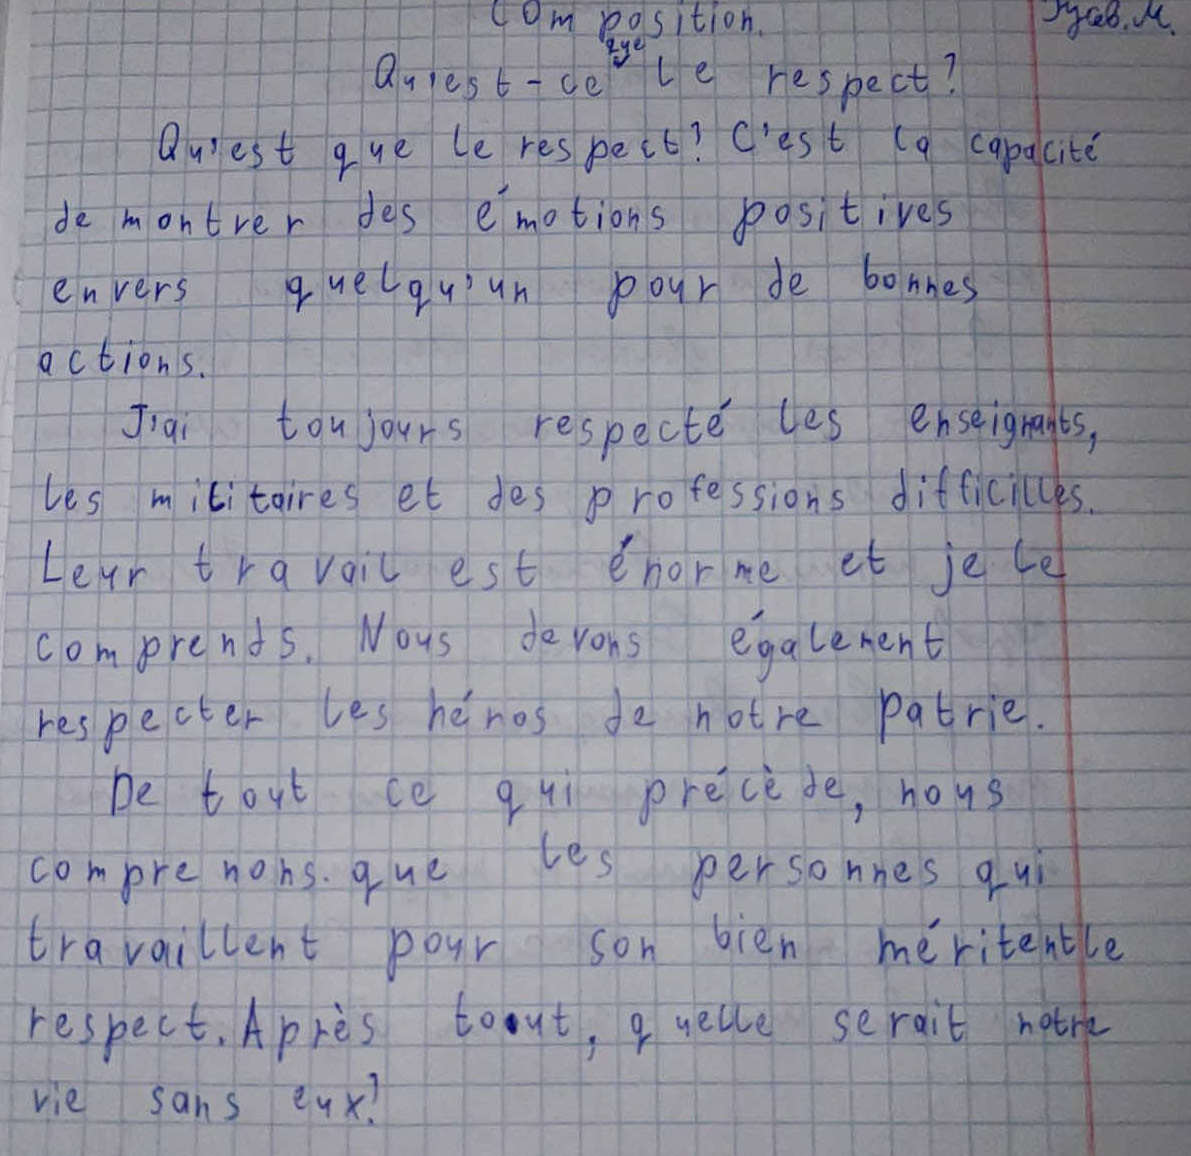 Composition.
Гуав. М.
Qu'est-ce que le respect?
Qu'est que le respect? C'est la capacité
de montrer des émotions positives
envers quelqu'un pour de bonnes
actions.
J'ai toujours respecté les enseignants,
les militaires et des professions difficilles.
Leur travail est énorme et je le
comprends. Nous devons également
respecter les héros de notre patrie.
De tout ce qui précède, nous
comprenons. que les personnes qui
travaillent pour son bien méritent le
respect. Après toout, quelle serait notre
vie sans eux?